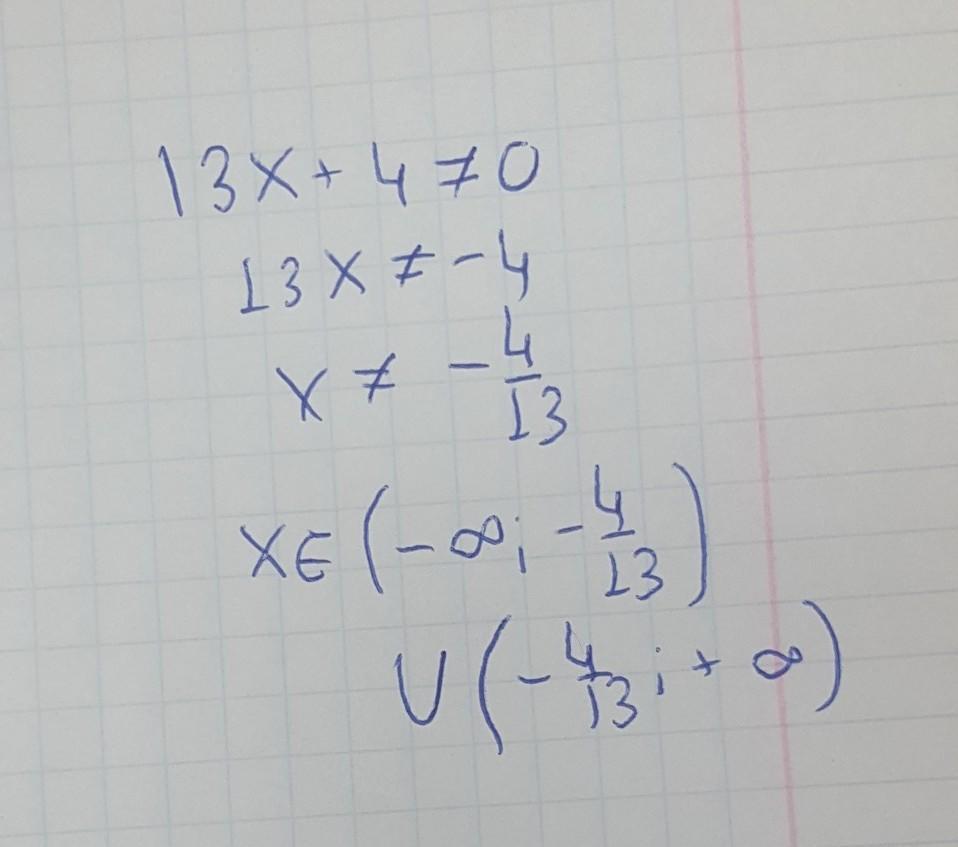 13x + 4 ≠ 0
13x ≠ -4
x ≠ -4/13
x ∈ (-∞; -4/13)
∪ (-4/13; +∞)